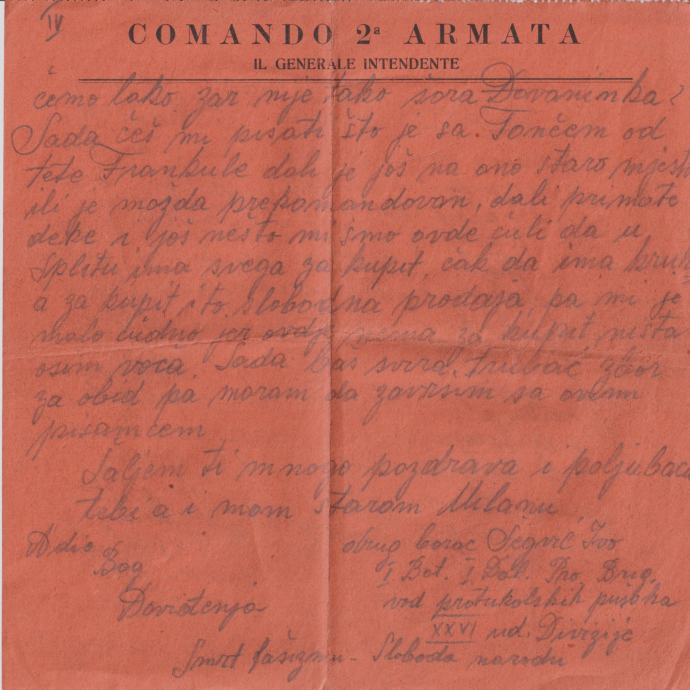 IV
COMANDO 2ª ARMATA
IL GENERALE INTENDENTE
ćemo lako zar nije tako šora Dovaninka?
Sada ćeš mi pisati što je sa. Tončem od
tete Frankule dali je još na ono staro mjesto
ili je možda prekomandovan, dali primate
deke i još nešto mi smo ovde čuli da u
Splitu ima svega za kupit, čak da ima kruh
a za kupit i to slobodna prodaja, pa mi je
malo čudno jer ovdje nema za kupit ništa
osim voća. Sada baš svira trubač zbor
za obid pa moram da završim sa ovim
pisamcem
Šaljem ti mnogo pozdrava i poljubaca
tebi a i mom starom Milanu
Adio
Bog
Doviđenja
drug borac Šegvić Ivo
I Bat. I. Dal. Pro. Brig.
vod protukolskih pušaka
XXVI ud. Divizije
Smrt fašizmu - Sloboda narodu